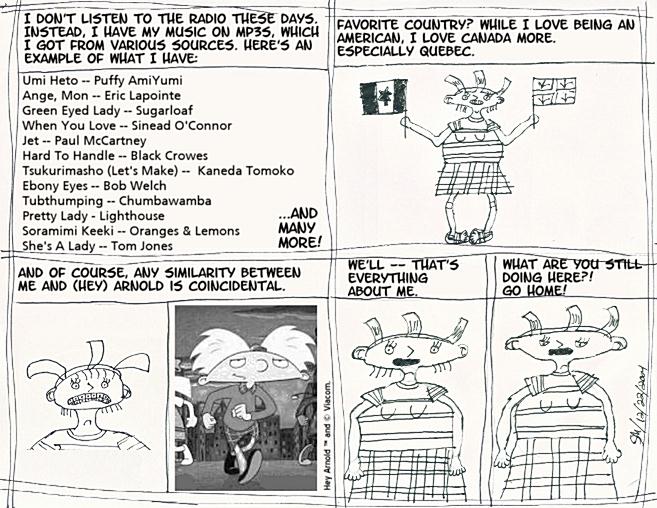 I DON'T LISTEN TO THE RADIO THESE DAYS.
INSTEAD, I HAVE MY MUSIC ON MP3S, WHICH
I GOT FROM VARIOUS SOURCES. HERE'S AN
EXAMPLE OF WHAT I HAVE:
Umi Heto -- Puffy AmiYumi
Ange, Mon -- Eric Lapointe
Green Eyed Lady -- Sugarloaf
When You Love -- Sinead O'Connor
Jet -- Paul McCartney
Hard To Handle -- Black Crowes
Tsukurimasho (Let's Make) -- Kaneda Tomoko
Ebony Eyes -- Bob Welch
Tubthumping -- Chumbawamba
Pretty Lady - Lighthouse
Soramimi Keeki -- Oranges & Lemons
She's A Lady -- Tom Jones
...AND
MANY
MORE!
FAVORITE COUNTRY? WHILE I LOVE BEING AN
AMERICAN, I LOVE CANADA MORE.
ESPECIALLY QUEBEC.
AND OF COURSE, ANY SIMILARITY BETWEEN
ME AND (HEY) ARNOLD IS COINCIDENTAL.
Hey Arnold ™ and © Viacom.
WE'LL -- THAT'S
EVERYTHING
ABOUT ME.
WHAT ARE YOU STILL
DOING HERE?!
GO HOME!
12/23/2004